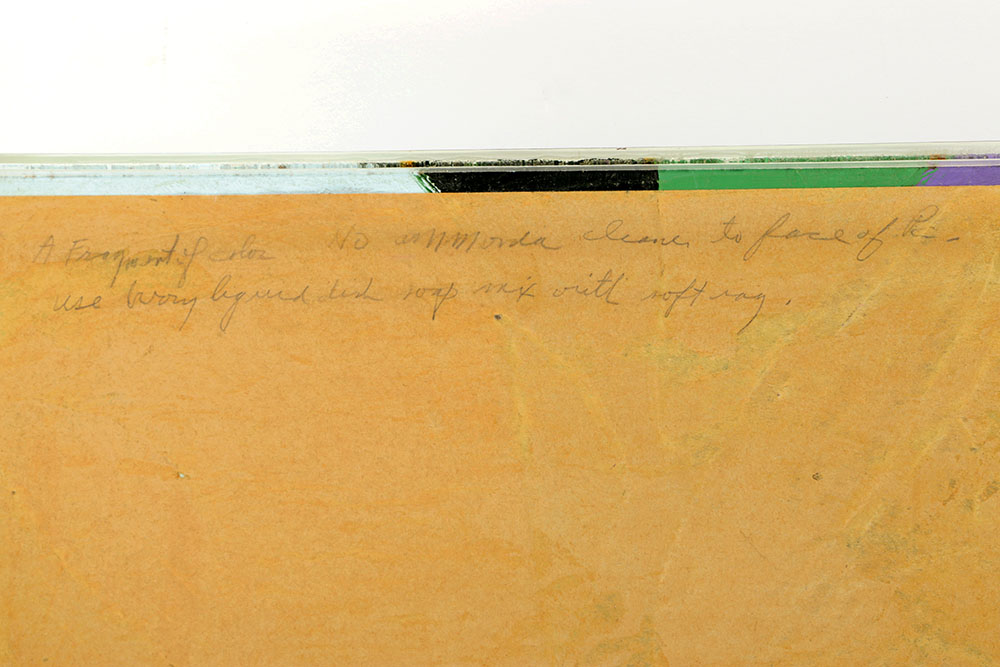 A Fragment of color No ammonia cleaner to face of
use Ivory liquid dish soap mix with soft rag.